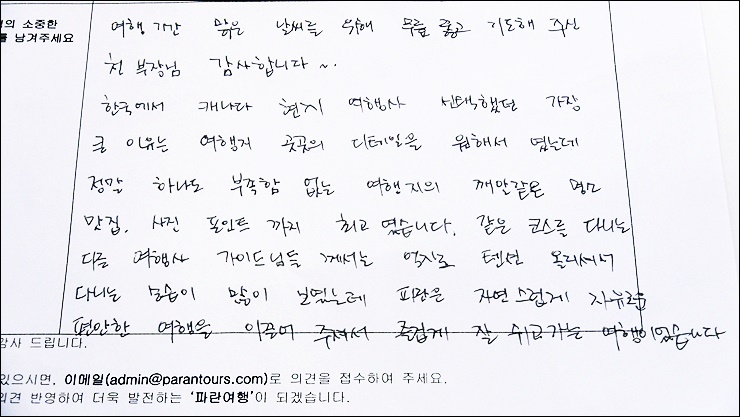 의 소중한
를 남겨주세요
여행 기간 맑은 날씨를 위해 무릎 꿇고 기도해 주신
천 부장님 감사합니다~.
한국에서 캐나다 현지 여행사 선택했던 가장
큰 이유는 여행지 곳곳의 디테일을 원해서 였는데
정말 하나도 부족함 없는 여행지의 깨알같은 명소
맛집, 사진 포인트 까지 최고 였습니다. 같은 코스를 다니는
다른 여행사 가이드님들 께서는 억지로 텐션 올리셔서
다니는 모습이 많이 보였는데 파란은 자연스럽게 자유로운
편안한 여행을 이끌어 주셔서 즐겁게 잘 쉬고가는 여행이었습니다
감사 드립니다.
있으시면, 이메일(admin@parantours.com)로 의견을 접수하여 주세요.
의견 반영하여 더욱 발전하는 '파란여행'이 되겠습니다.